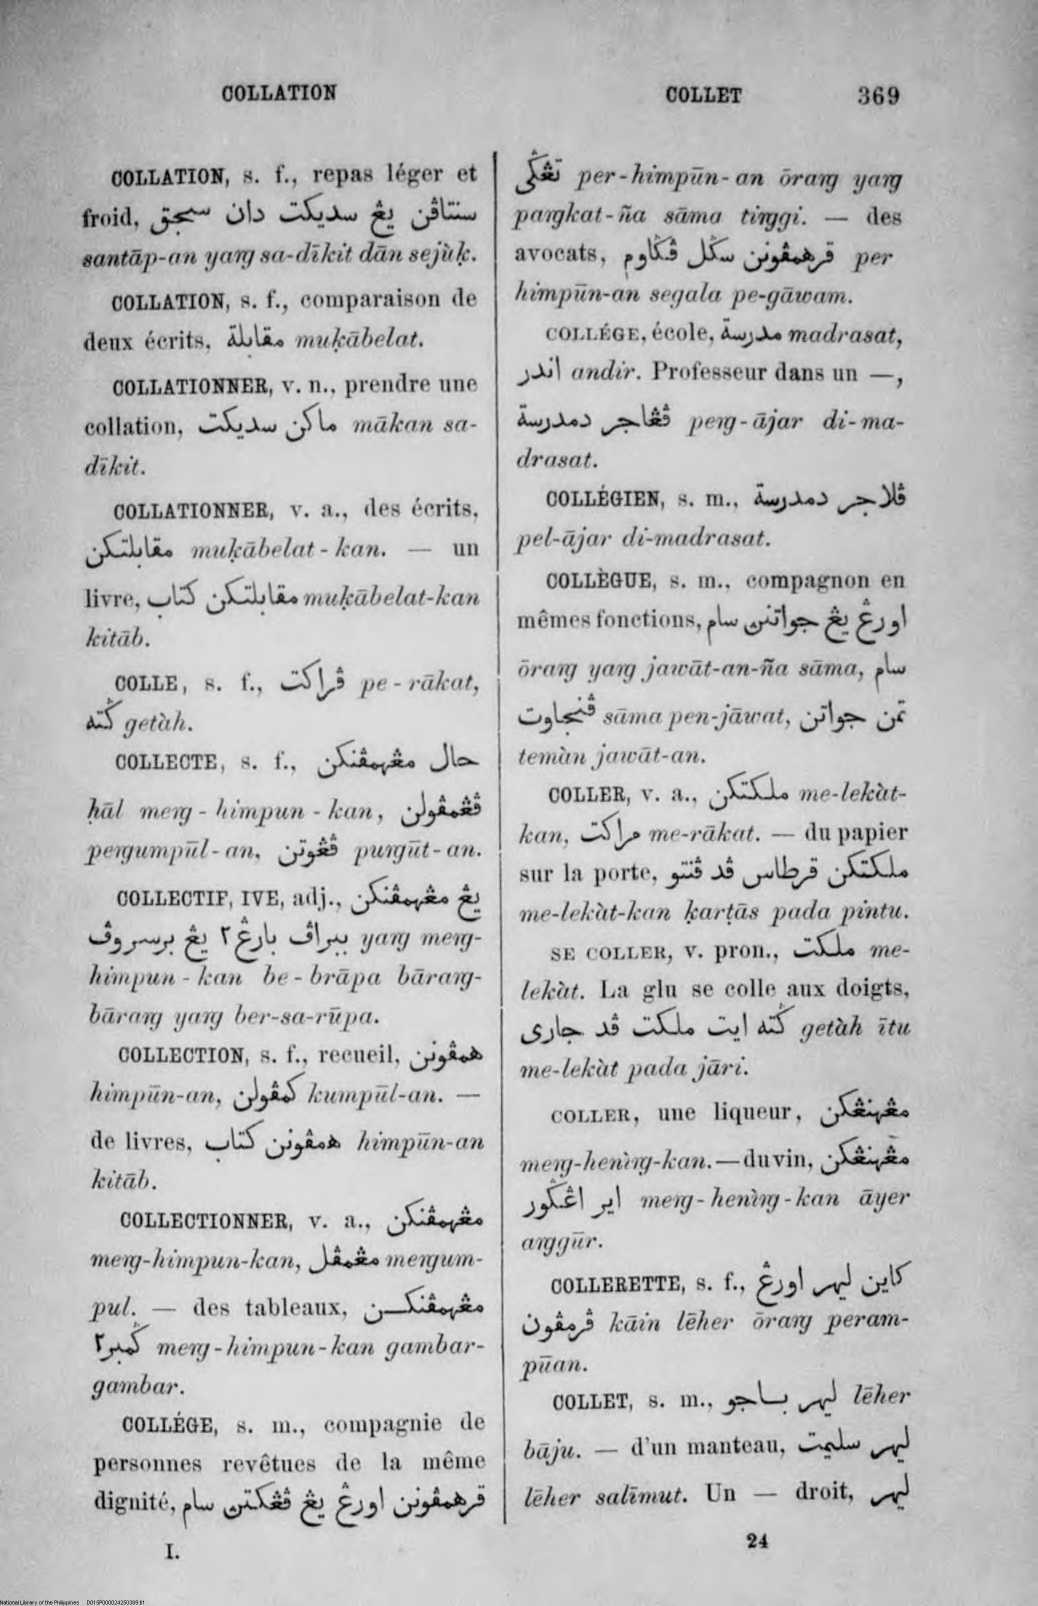 COLLATION
COLLET 369
COLLATION, s. f., repas léger et
froid, سنتاڤن يڠ سديكت دان سجق
santāp-an yaṅg sa-dīkit dān sejùḳ.
COLLATION, s. f., comparaison de
deux écrits, مقابلة muḳābelat.
COLLATIONNER, v. n., prendre une
collation, ماكن سديكت mākan sa-
dīkit.
COLLATIONNER, v. a., des écrits,
مقابلتكن muḳābelat-kan. — un
livre, مقابلتكن كتاب muḳābelat-kan
kitāb.
COLLE, s. f., ڤراكت pe-rākat,
ڬته getàh.
COLLECTE, s. f., حال مڠهمڤنكن
ḥāl meṅg-himpun-kan, ڤڠمڤولن
peṅgumpūl-an, ڤڠوتن puṅgūt-an.
COLLECTIF, IVE, adj., يڠ مڠهمڤنكن
ببراڤ بارڠ٢ يڠ برسروڤ yaṅg meṅg-
himpun-kan be-brāpa bāraṅg-
bāraṅg yaṅg ber-sa-rūpa.
COLLECTION, s. f., recueil, همڤونن
himpūn-an, كمڤولن kumpūl-an. —
de livres, همڤونن كتاب himpūn-an
kitāb.
COLLECTIONNER, v. a., مڠهمڤنكن
meṅg-himpun-kan, مڠمڤل meṅgum-
pul. — des tableaux, مڠهمڤنكن
ڬمبر٢ meṅg-himpun-kan gambar-
gambar.
COLLÉGE, s. m., compagnie de
personnes revêtues de la même
dignité, ڤرهمڤونن اورڠ يڠ ڤڠكتن سام
تڠڬي per-himpūn-an ōraṅg yaṅg
paṅgkat-ña sāma tiṅggi. — des
avocats, ڤرهمڤونن سڬل ڤڬاوم per
himpūn-an segala pe-gāwam.
COLLÉGE, école, مدرسة madrasat,
اندر andir. Professeur dans un —,
ڤڠاجر دمدرسة peṅg-ājar di-ma-
drasat.
COLLÉGIEN, s. m., ڤلاجر دمدرسة
pel-ājar di-madrasat.
COLLÈGUE, s. m., compagnon en
mêmes fonctions, اورڠ يڠ جواتنن سام
ōraṅg yaṅg jawāt-an-ña sāma, سام
ڤنجاوت sāma pen-jāwat, تمن جواتن
temàn jawāt-an.
COLLER, v. a., ملكتكن me-lekàt-
kan, مراكت me-rākat. — du papier
sur la porte, ملكتكن قرطاس ڤد ڤنتو
me-lekàt-kan ḳarṭās pada pintu.
SE COLLER, v. pron., ملكت me-
lekàt. La glu se colle aux doigts,
ڬته ايت ملكت ڤد جاري getàh ītu
me-lekàt pada jāri.
COLLER, une liqueur, مڠهنڠكن
meṅg-henìṅg-kan. — du vin, مڠهنڠكن
اير اڠڬور meṅg-henìṅg-kan āyer
aṅggūr.
COLLERETTE, s. f., كاين ليهر اورڠ
ڤرمڤون kāin lēher ōraṅg peram-
pūan.
COLLET, s. m., ليهر باجو lēher
bāju. — d'un manteau, ليهر سليمت
lēher salīmut. Un — droit, ليهر
I.
24
National Library of the Philippines